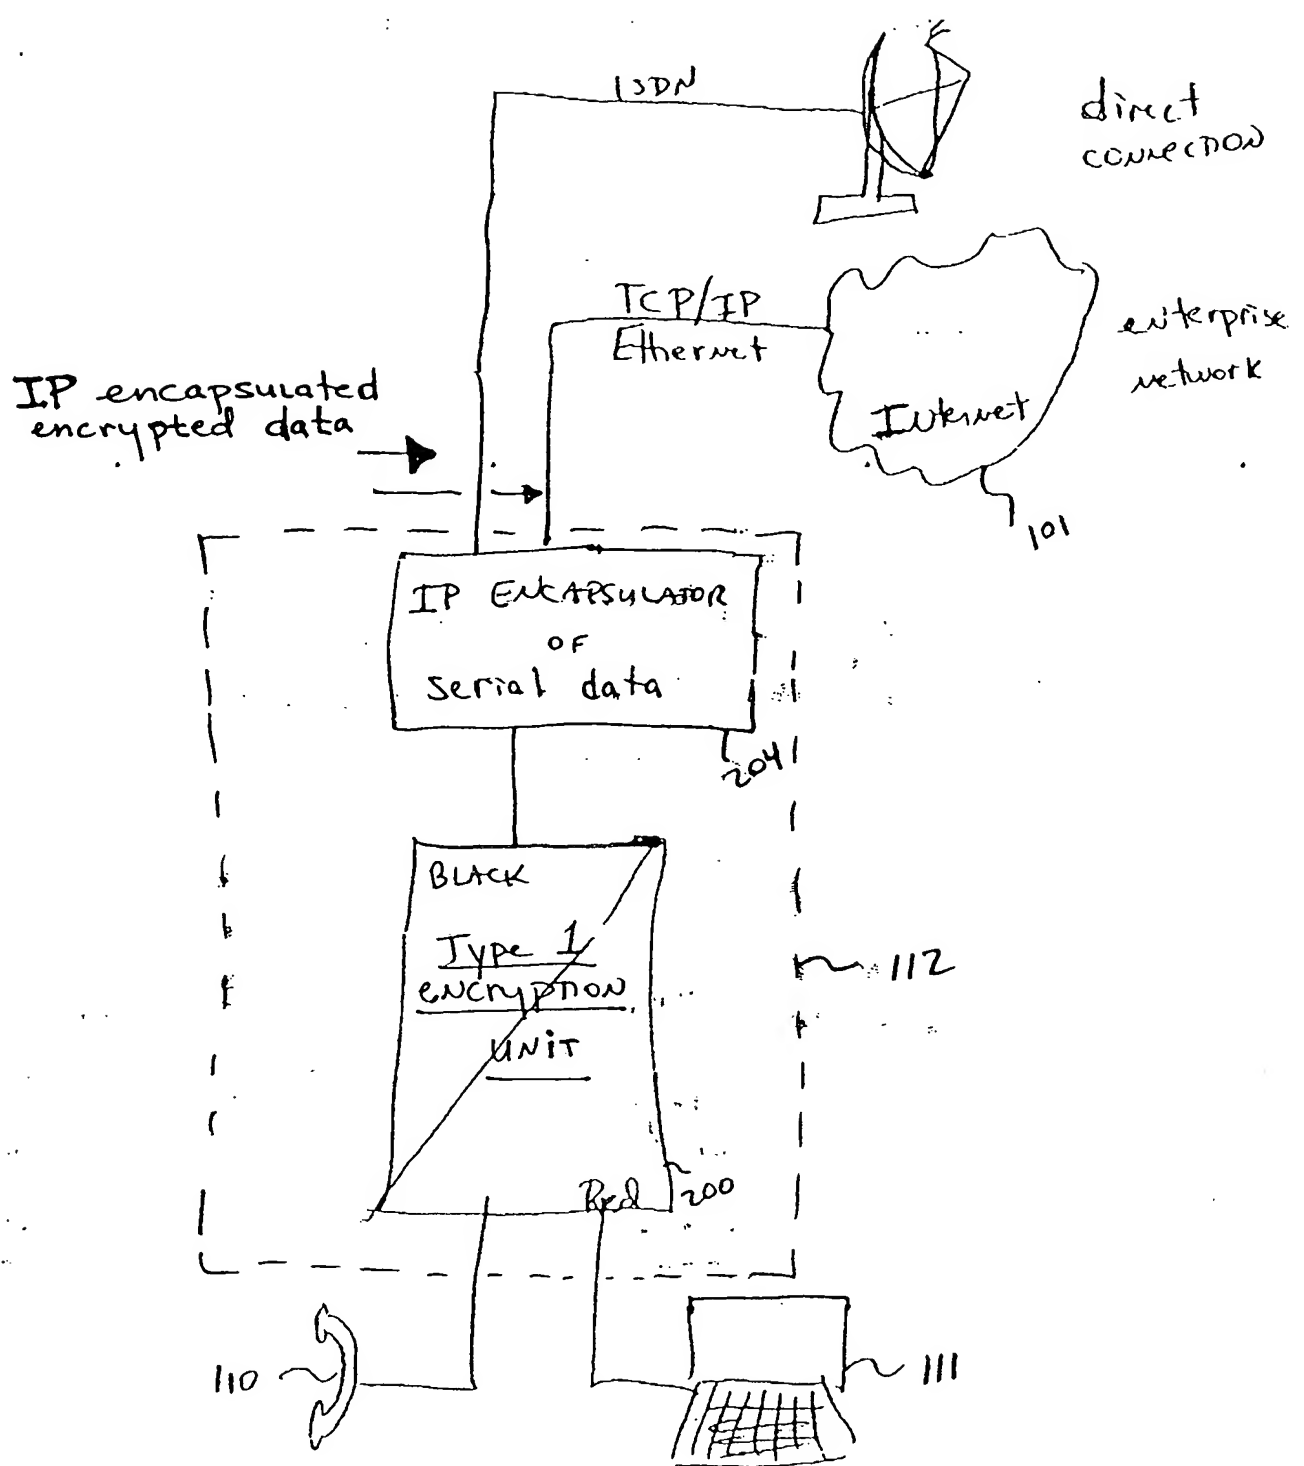 ISDN
direct
connection
TCP/IP
Ethernet
enterprise
network
Internet
101
IP encapsulated
encrypted data
IP ENCAPSULATOR
OF
serial data
204
BLACK
Type 1
encryption
UNIT
112
Red
200
110
111